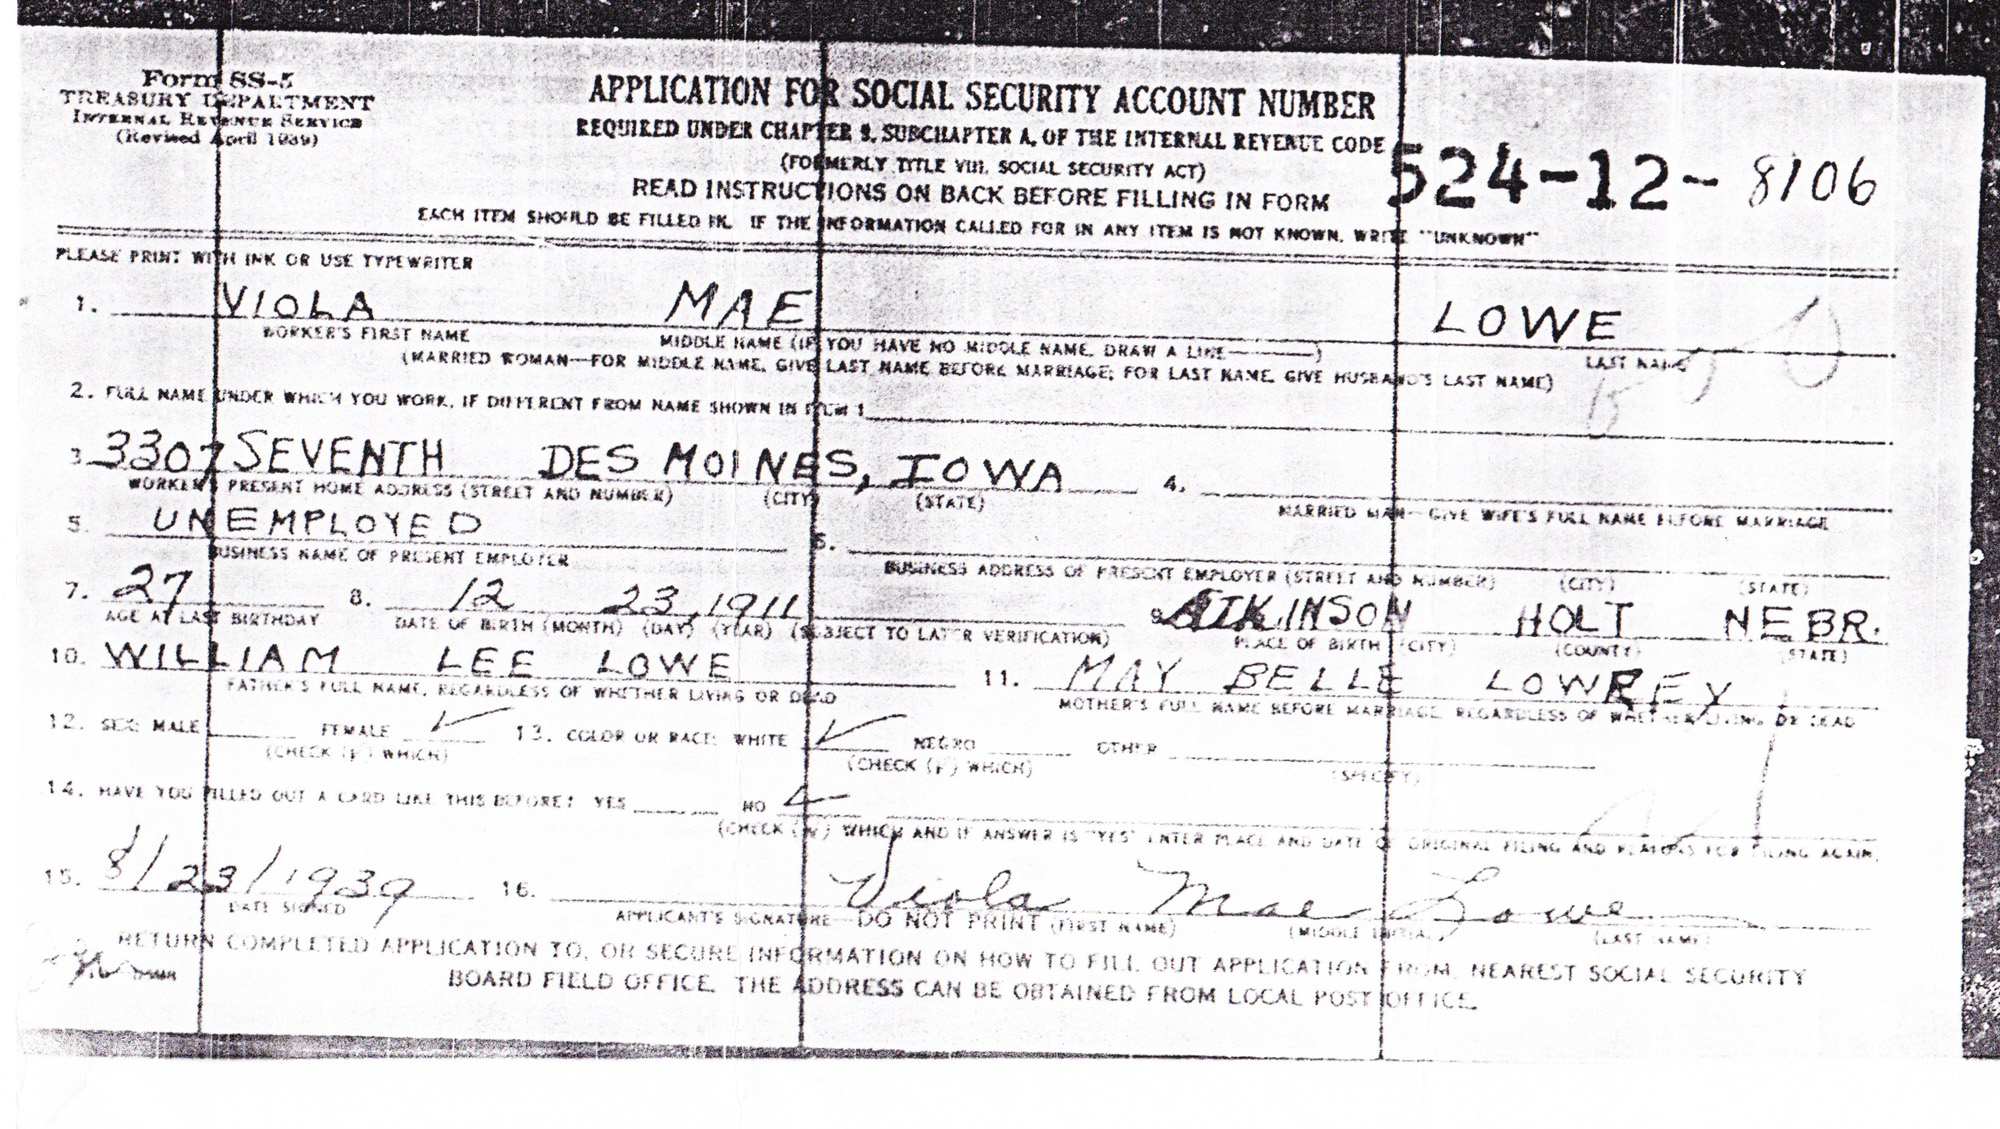 Form SS-5
TREASURY DEPARTMENT
INTERNAL REVENUE SERVICE
(Revised April 1939)
APPLICATION FOR SOCIAL SECURITY ACCOUNT NUMBER
REQUIRED UNDER CHAPTER 9, SUBCHAPTER A, OF THE INTERNAL REVENUE CODE
(FORMERLY TITLE VIII, SOCIAL SECURITY ACT)
524-12-8106
READ INSTRUCTIONS ON BACK BEFORE FILLING IN FORM
EACH ITEM SHOULD BE FILLED IN. IF THE INFORMATION CALLED FOR IN ANY ITEM IS NOT KNOWN, WRITE "UNKNOWN"
PLEASE PRINT WITH INK OR USE TYPEWRITER
1. VIOLA MAE LOWE
WORKER'S FIRST NAME MIDDLE NAME (IF YOU HAVE NO MIDDLE NAME, DRAW A LINE———) LAST NAME
(MARRIED WOMAN—FOR MIDDLE NAME, GIVE LAST NAME BEFORE MARRIAGE; FOR LAST NAME, GIVE HUSBAND'S LAST NAME)
2. FULL NAME UNDER WHICH YOU WORK, IF DIFFERENT FROM NAME SHOWN IN ITEM 1
3. 3307 SEVENTH DES MOINES, IOWA 4.
WORKER'S PRESENT HOME ADDRESS (STREET AND NUMBER) (CITY) (STATE) MARRIED MAN—GIVE WIFE'S FULL NAME BEFORE MARRIAGE
5. UNEMPLOYED 6.
BUSINESS NAME OF PRESENT EMPLOYER BUSINESS ADDRESS OF PRESENT EMPLOYER (STREET AND NUMBER) (CITY) (STATE)
7. 27 8. 12 23, 1911 9. ATKINSON HOLT NEBR.
AGE AT LAST BIRTHDAY DATE OF BIRTH (MONTH) (DAY) (YEAR) (SUBJECT TO LATER VERIFICATION) PLACE OF BIRTH (CITY) (COUNTY) (STATE)
10. WILLIAM LEE LOWE 11. MAY BELLE LOWREY
FATHER'S FULL NAME, REGARDLESS OF WHETHER LIVING OR DEAD MOTHER'S FULL NAME BEFORE MARRIAGE, REGARDLESS OF WHETHER LIVING OR DEAD
12. SEX: MALE FEMALE ✓ 13. COLOR OR RACE: WHITE ✓ NEGRO OTHER
(CHECK (✓) WHICH) (CHECK (✓) WHICH) (SPECIFY)
14. HAVE YOU FILLED OUT A CARD LIKE THIS BEFORE? YES NO ✓
(CHECK (✓) WHICH AND IF ANSWER IS "YES" ENTER PLACE AND DATE OF ORIGINAL FILING AND REASONS FOR FILING AGAIN.
15. 8/23/1939 16. Viola Mae Lowe
DATE SIGNED APPLICANT'S SIGNATURE—DO NOT PRINT (FIRST NAME) (MIDDLE INITIAL) (LAST NAME)
RETURN COMPLETED APPLICATION TO, OR SECURE INFORMATION ON HOW TO FILL OUT APPLICATION FROM, NEAREST SOCIAL SECURITY
BOARD FIELD OFFICE. THE ADDRESS CAN BE OBTAINED FROM LOCAL POST OFFICE.